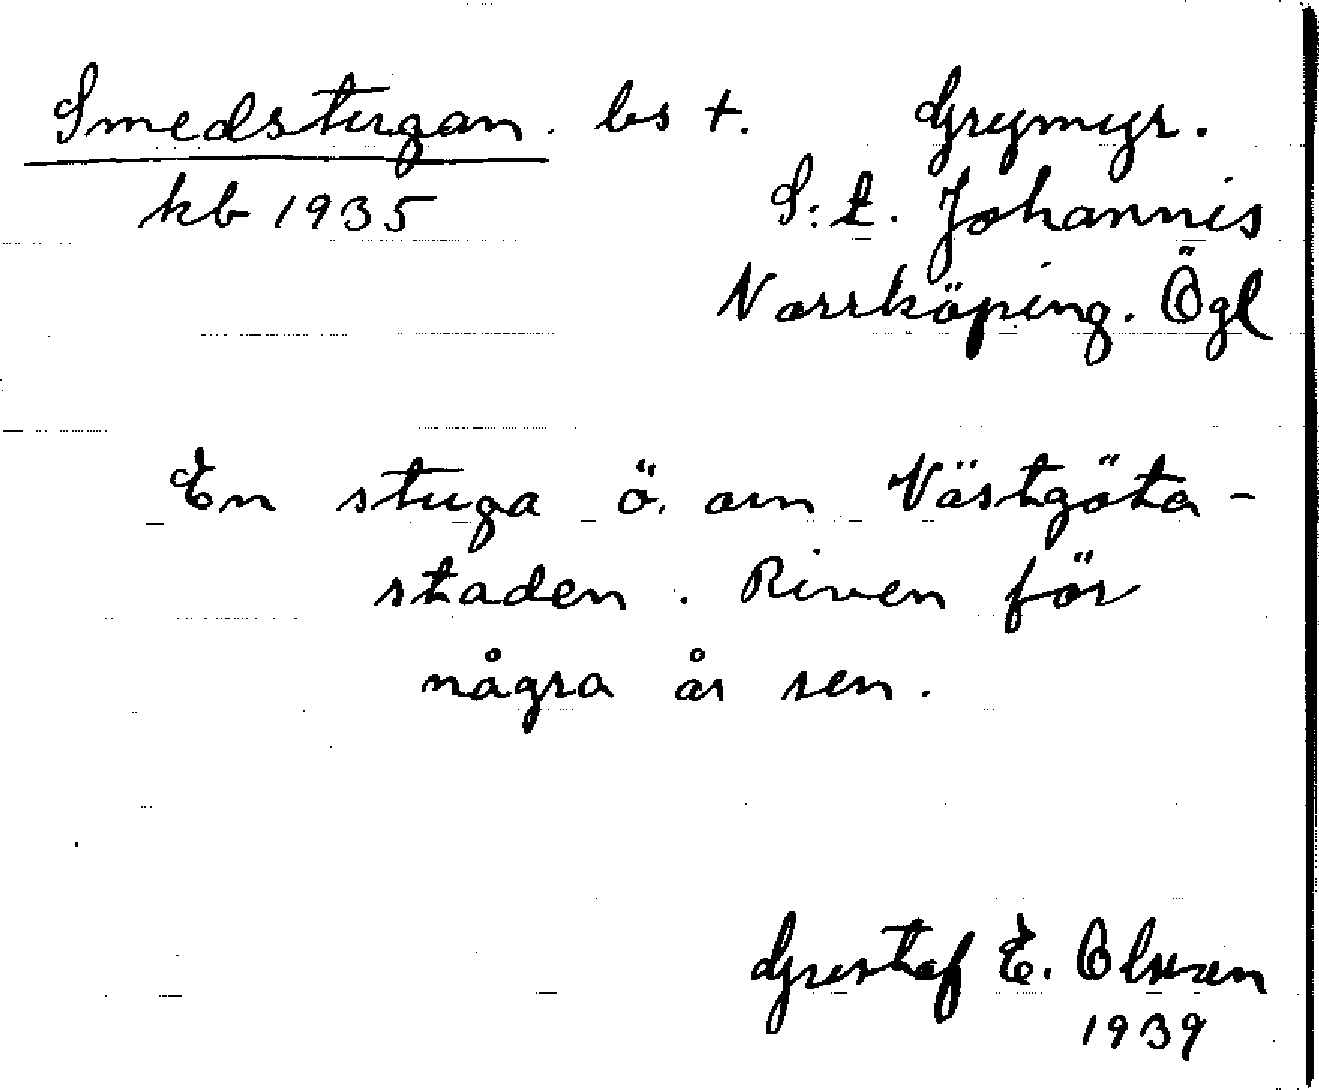 Smedstugan. bs +. Grymyr.
kb 1935 S:t. Johannis
Norrköping. Ögl
En stuga ö. om Västgöta-
staden. Riven för
några år sen.
Gustaf E. Olsson
1939